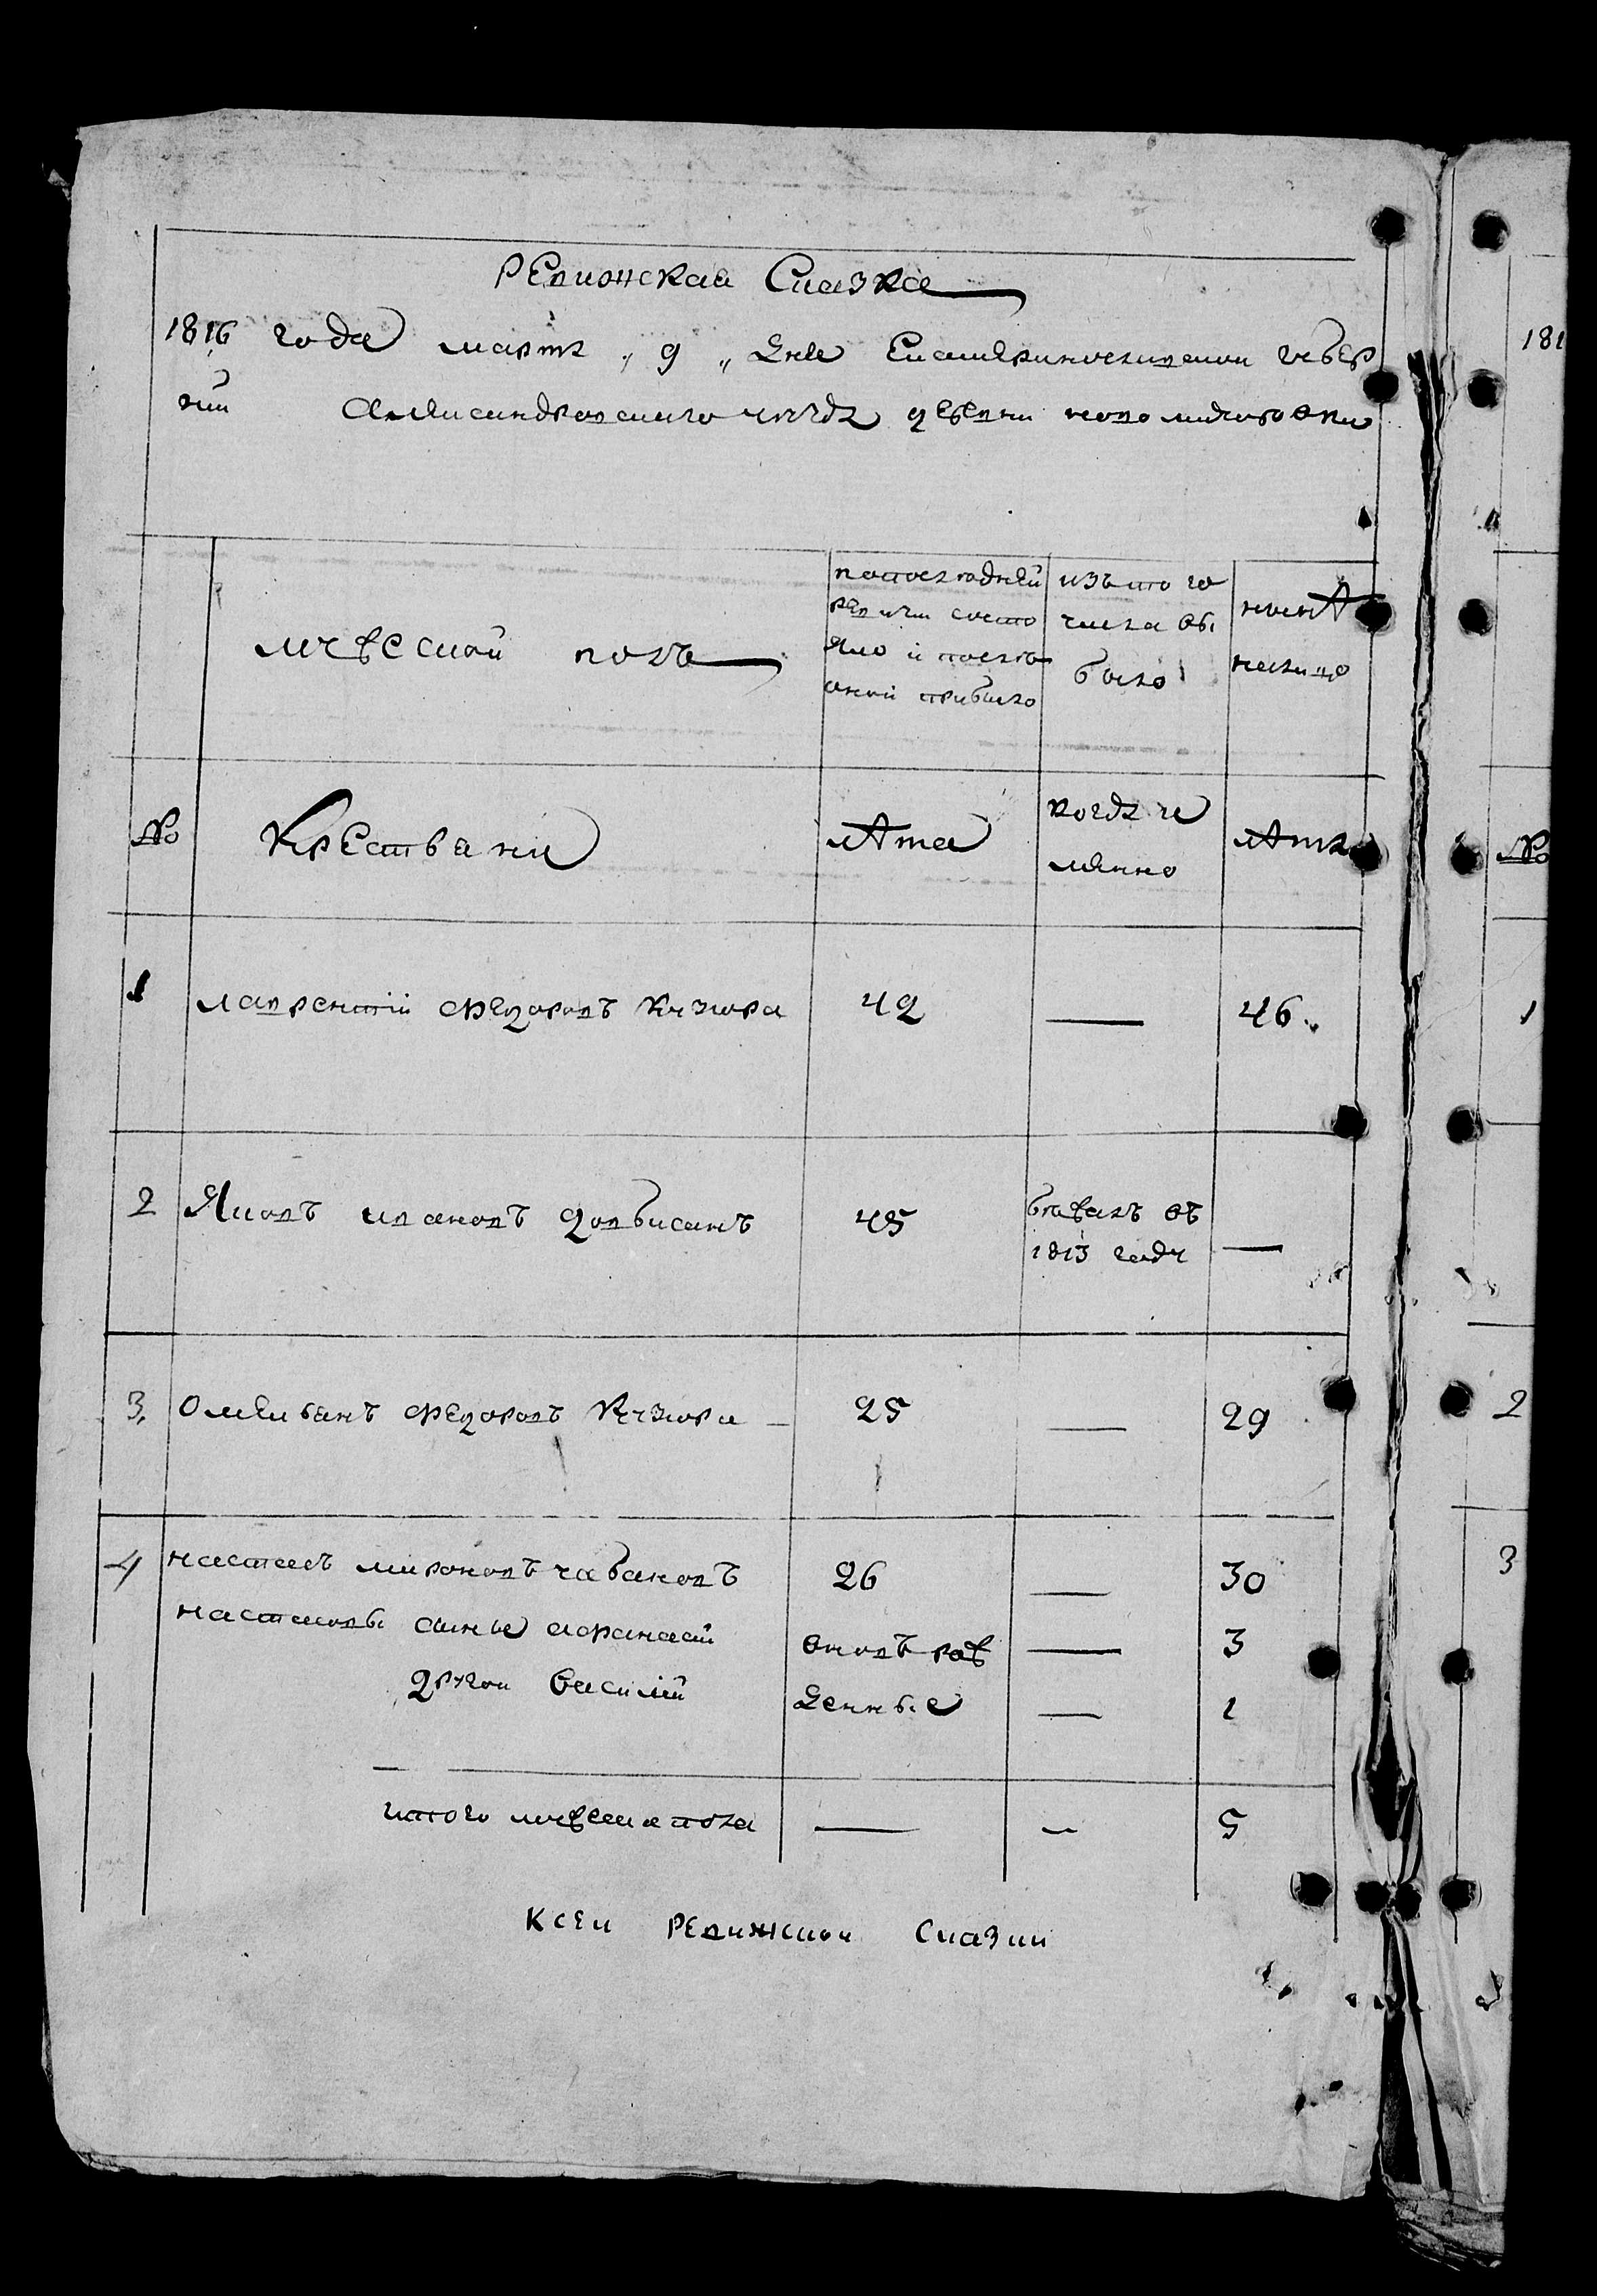 Ревижская Сказка
1816 года марта „ 9 „ дня Екатеринославской губер
нии Александровскаго уезда деревни
мужеской полъ
по последней
ревизии состо
яло и после
оной прибыло
изъ того
числа вы
было
ныне
на лицо
№ Крестьяне
лѣта
когда и
менно
лѣта
1 лаврентий Федоровъ Кузюра 42 — 46
2 Яковъ ивановъ довбисанъ 45 бежалъ въ
1813 году —
3. омельянъ Федоровъ Кузюра — 25 — 29
4 настасъ мироновъ чабановъ 26 — 30
настасовы сынье афанасий вновь рож — 3
другой василий денные — 1
итого мужеска пола — — 5
К сеи Ревижскои Сказки
181
№
1
2
3